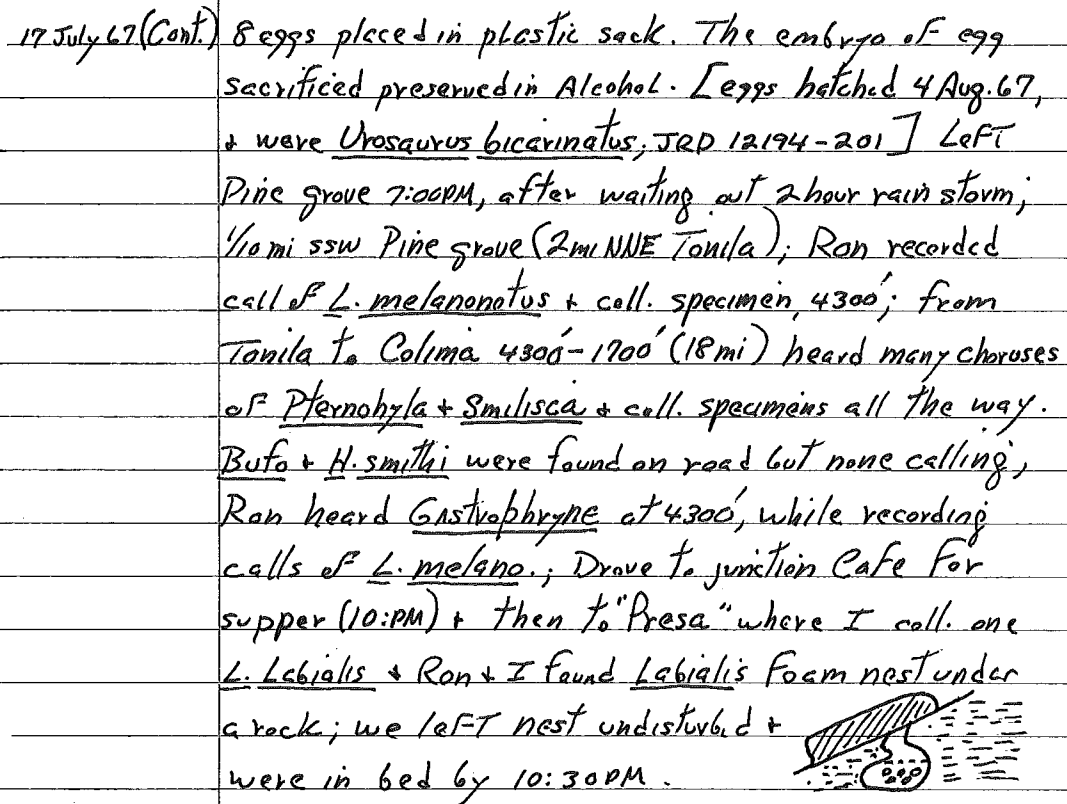 17 July 67 (Cont.) 8 eggs placed in plastic sack. The embryo of egg
sacrificed preserved in Alcohol. [eggs hatched 4 Aug. 67,
& were Urosaurus bicarinatus, JRD 12194-201] Left
Pine grove 7:00PM, after waiting out 2 hour rain storm;
1/10 mi SSW Pine grove (2 mi NNE Tonila); Ron recorded
call of L. melanonotus + coll. specimen, 4300'; from
Tonila to Colima 4300'-1700' (18 mi) heard many choruses
of Pternohyla + Smilisca & coll. specimens all the way.
Bufo + H. smithi were found on road but none calling;
Ron heard Gastrophryne at 4300', while recording
calls of L. melano.; Drove to junction Cafe for
supper (10:PM) + then to "Presa" where I coll. one
L. Labialis & Ron + I found Labialis Foam nest under
a rock; we left nest undisturbed +
were in bed by 10:30PM.